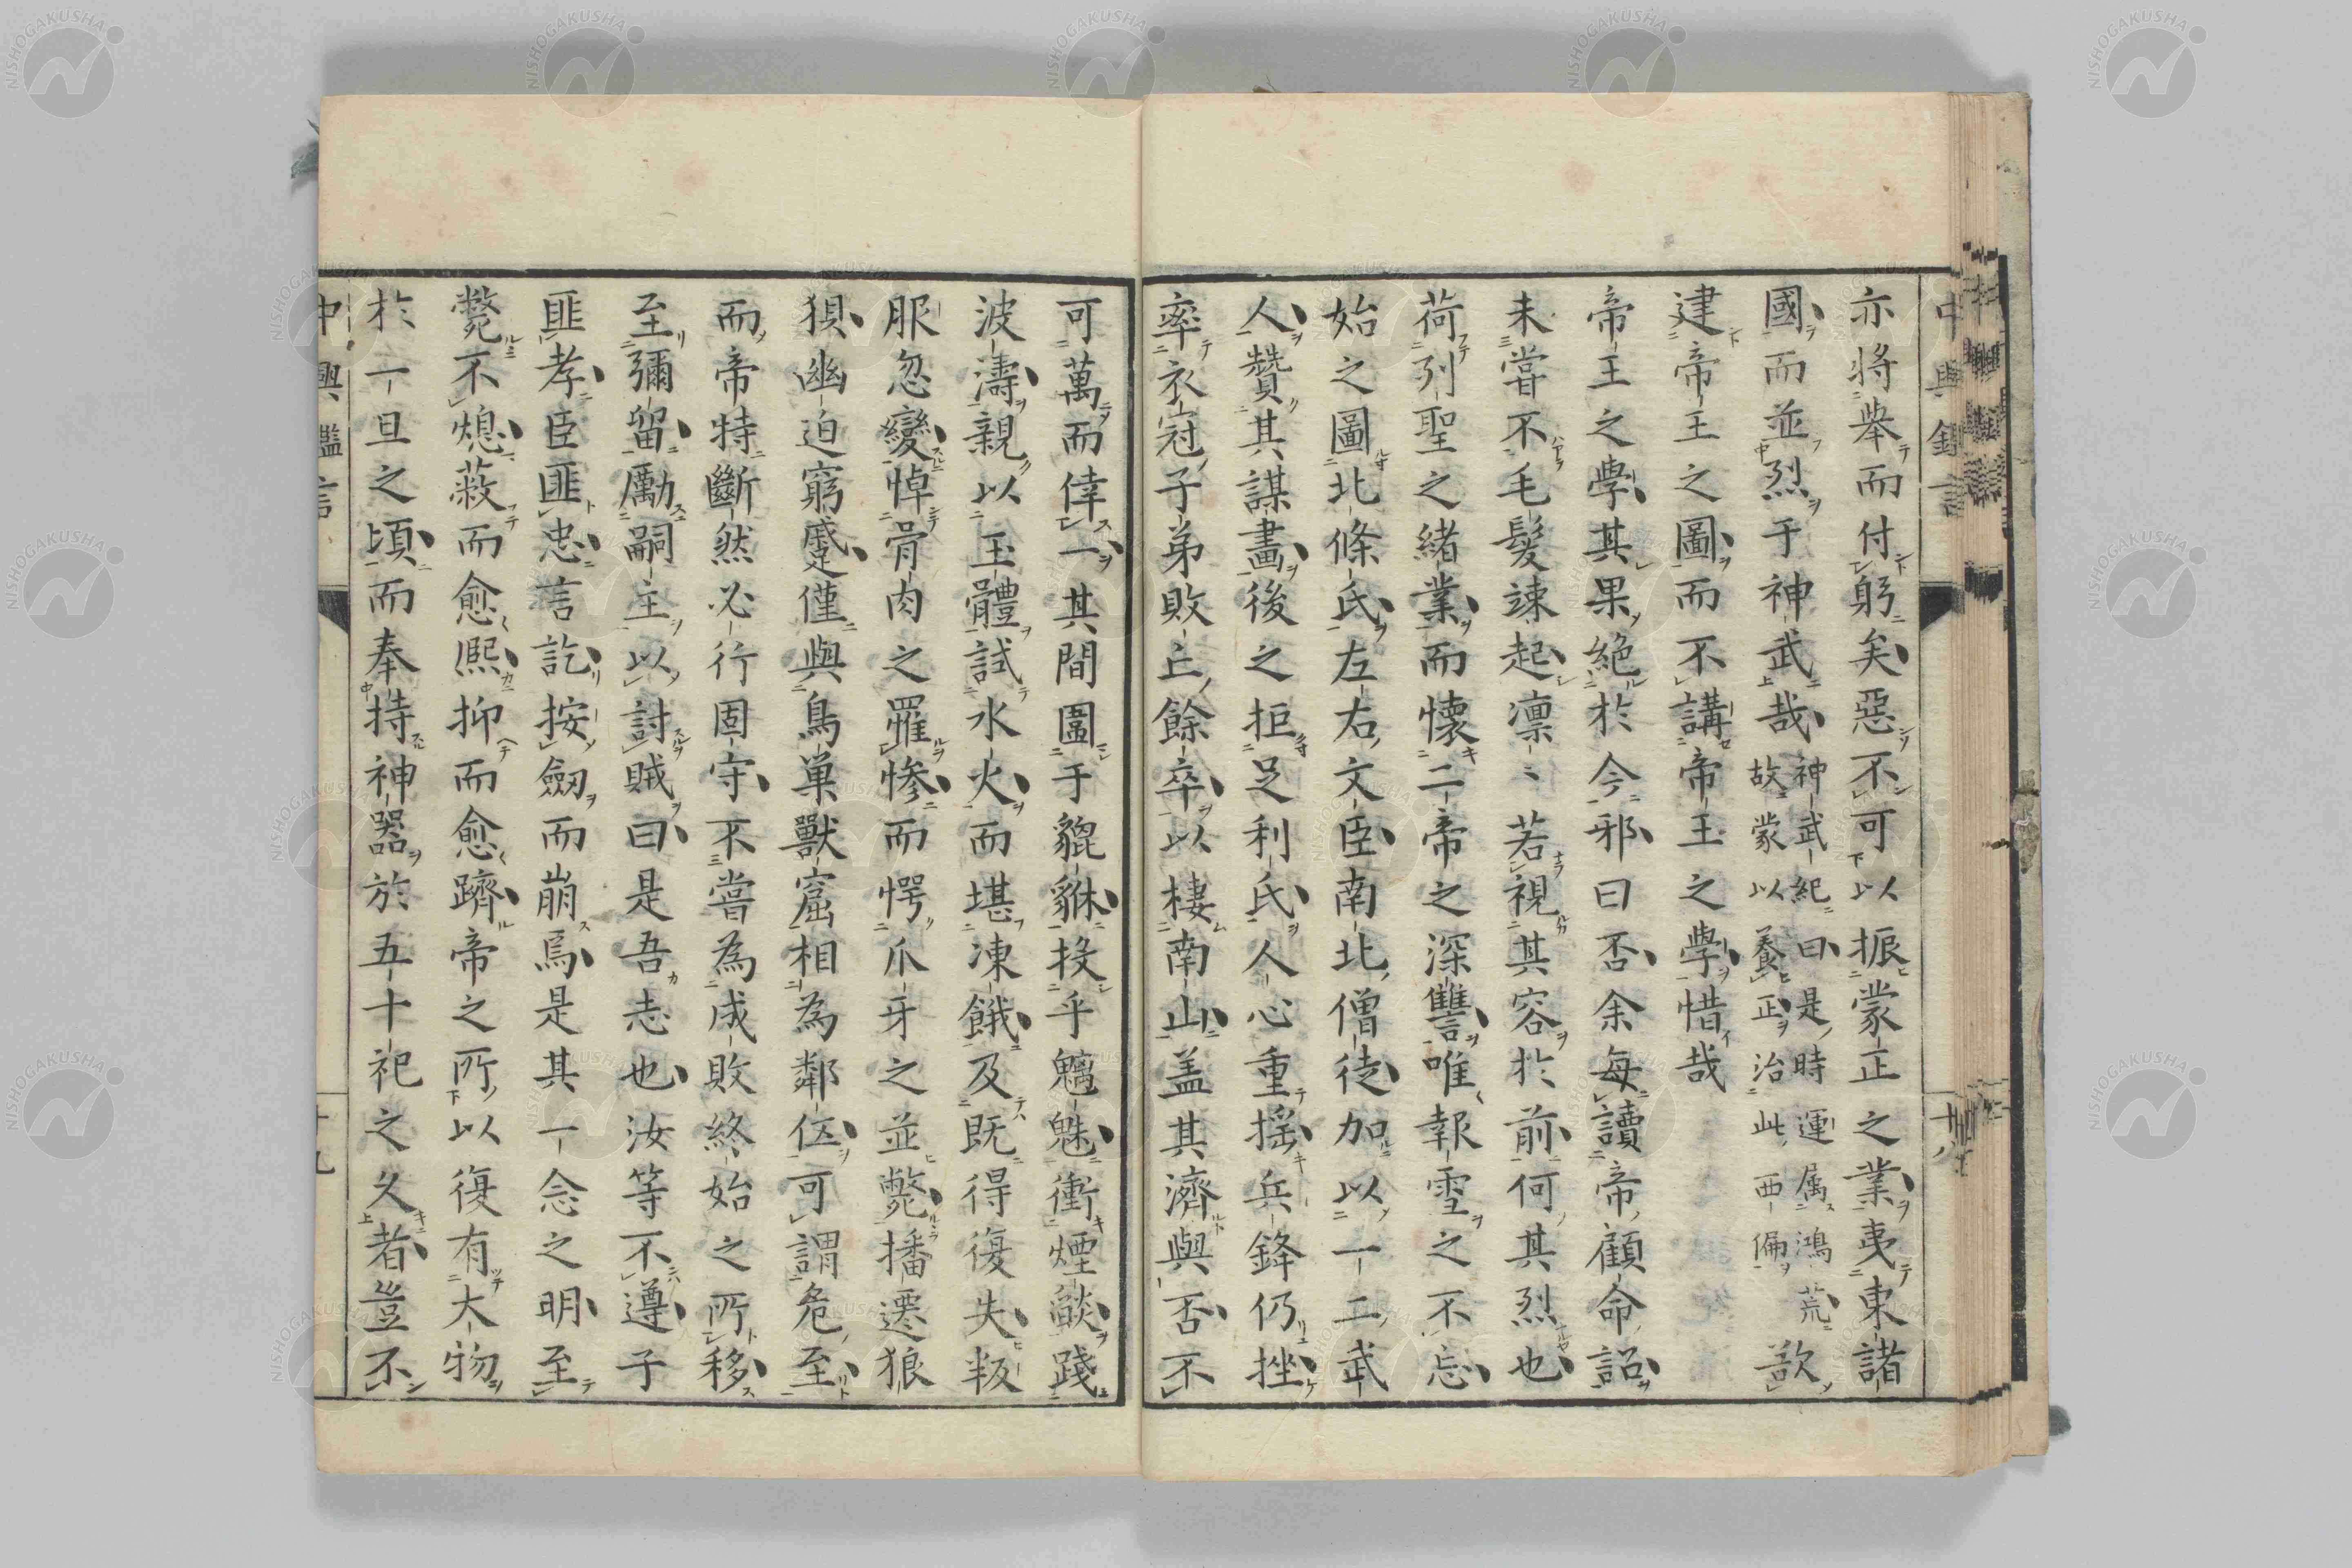 亦將舉而付躬矣惡不可以振蒙正之業夷東諸
國而並烈于神武哉神武紀曰是時運属鴻荒
故蒙以養正治此西偏歟
建帝王之圖而不講帝王之學惜哉
帝王之學其果絕於今邪曰否余每讀帝顧命詔
未嘗不毛髮竦起凛〻若視其容於前何其烈也
荷列聖之緒業而懷二帝之深讐唯報雪之不忘
始之圖北條氏左右文臣南北僧徒加以一二武
人贊其謀畫後之拒足利氏人心重搖兵鋒仍挫
率衣冠子弟敗亡餘卒以棲南山盖其濟與否不
可萬而倖一其間圍于貔貅投乎魑魅衝煙燄踐
波濤親以玉體試水火而堪凍餓及既得復失叛
服忽變悼骨肉之罹惨而愕爪牙之並斃播遷狼
狽幽迫窮蹙僅與鳥巢獸窟相為鄰伍可謂危至
而帝特斷然必行固守不嘗為成敗終始之所移
至彌留勵嗣主以討賊曰是吾志也汝等不遵子
匪孝臣匪忠言訖按劔而崩焉是其一念之明至
斃不熄蔽而愈熙抑而愈躋帝之所以復有大物
於一旦之頃而奉持神器於五十祀之久者豈不
中興鑑言
十九
中興鑑言